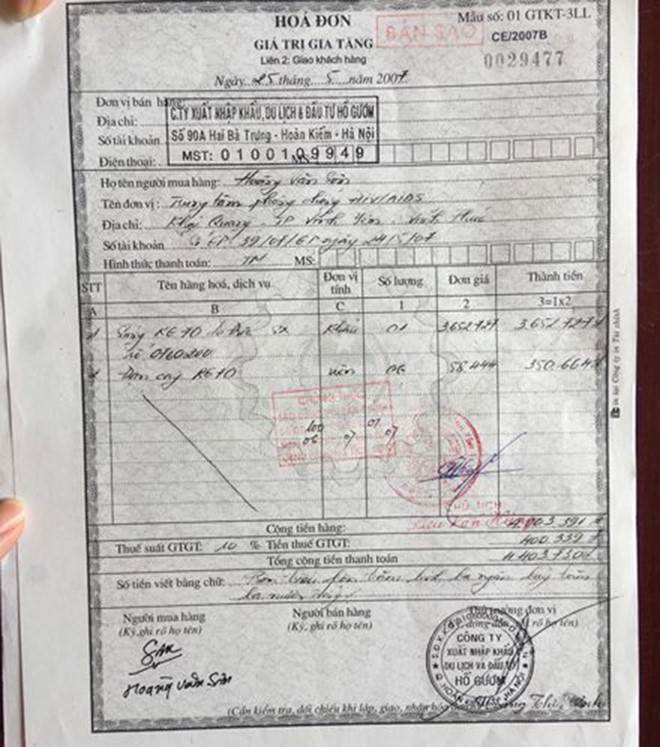 HOÁ ĐƠN
GIÁ TRỊ GIA TĂNG
Liên 2: Giao khách hàng
Mẫu số: 01 GTKT-3LL
BẢN SAO
CE/2007B
0029477
Ngày 25 tháng 5 năm 2007
Đơn vị bán hàng:
C.TY XUẤT NHẬP KHẨU, DU LỊCH & ĐẦU TƯ HỒ GƯƠM
Địa chỉ:
Số 90A Hai Bà Trưng - Hoàn Kiếm - Hà Nội
Số tài khoản
Điện thoại:
MST: 0100109949
Họ tên người mua hàng: Hoàng Văn Sơn
Tên đơn vị: Trung tâm phòng chống HIV/AIDS
Địa chỉ: Khai Quang - TP Vĩnh Yên - Vĩnh Phúc
Số tài khoản Số GP 39/07/GP ngày 24/5/07
Hình thức thanh toán: TM MS:
STT Tên hàng hoá, dịch vụ Đơn vị tính Số lượng Đơn giá Thành tiền
A B C 1 2 3=1x2
1 Súng KE 10 SX Khẩu 01 3.652.727 3.652.727
Số 0760200
Đạn cay KE 10 viên 06 350.664
Cộng tiền hàng: 4.003.391
Thuế suất GTGT: 10 % Tiền thuế GTGT: 400.339
Tổng cộng tiền thanh toán 4.403.730
Số tiền viết bằng chữ: Bốn triệu bốn trăm ba ngàn bảy trăm
ba mươi đồng
Người mua hàng
(Ký, ghi rõ họ tên)
Người bán hàng
(Ký, ghi rõ họ tên)
Thủ trưởng đơn vị
Hoàng Văn Sơn
CÔNG TY
XUẤT NHẬP KHẨU
DU LỊCH VÀ ĐẦU TƯ
HỒ GƯƠM
(Cần kiểm tra, đối chiếu khi lập, giao, nhận hoá